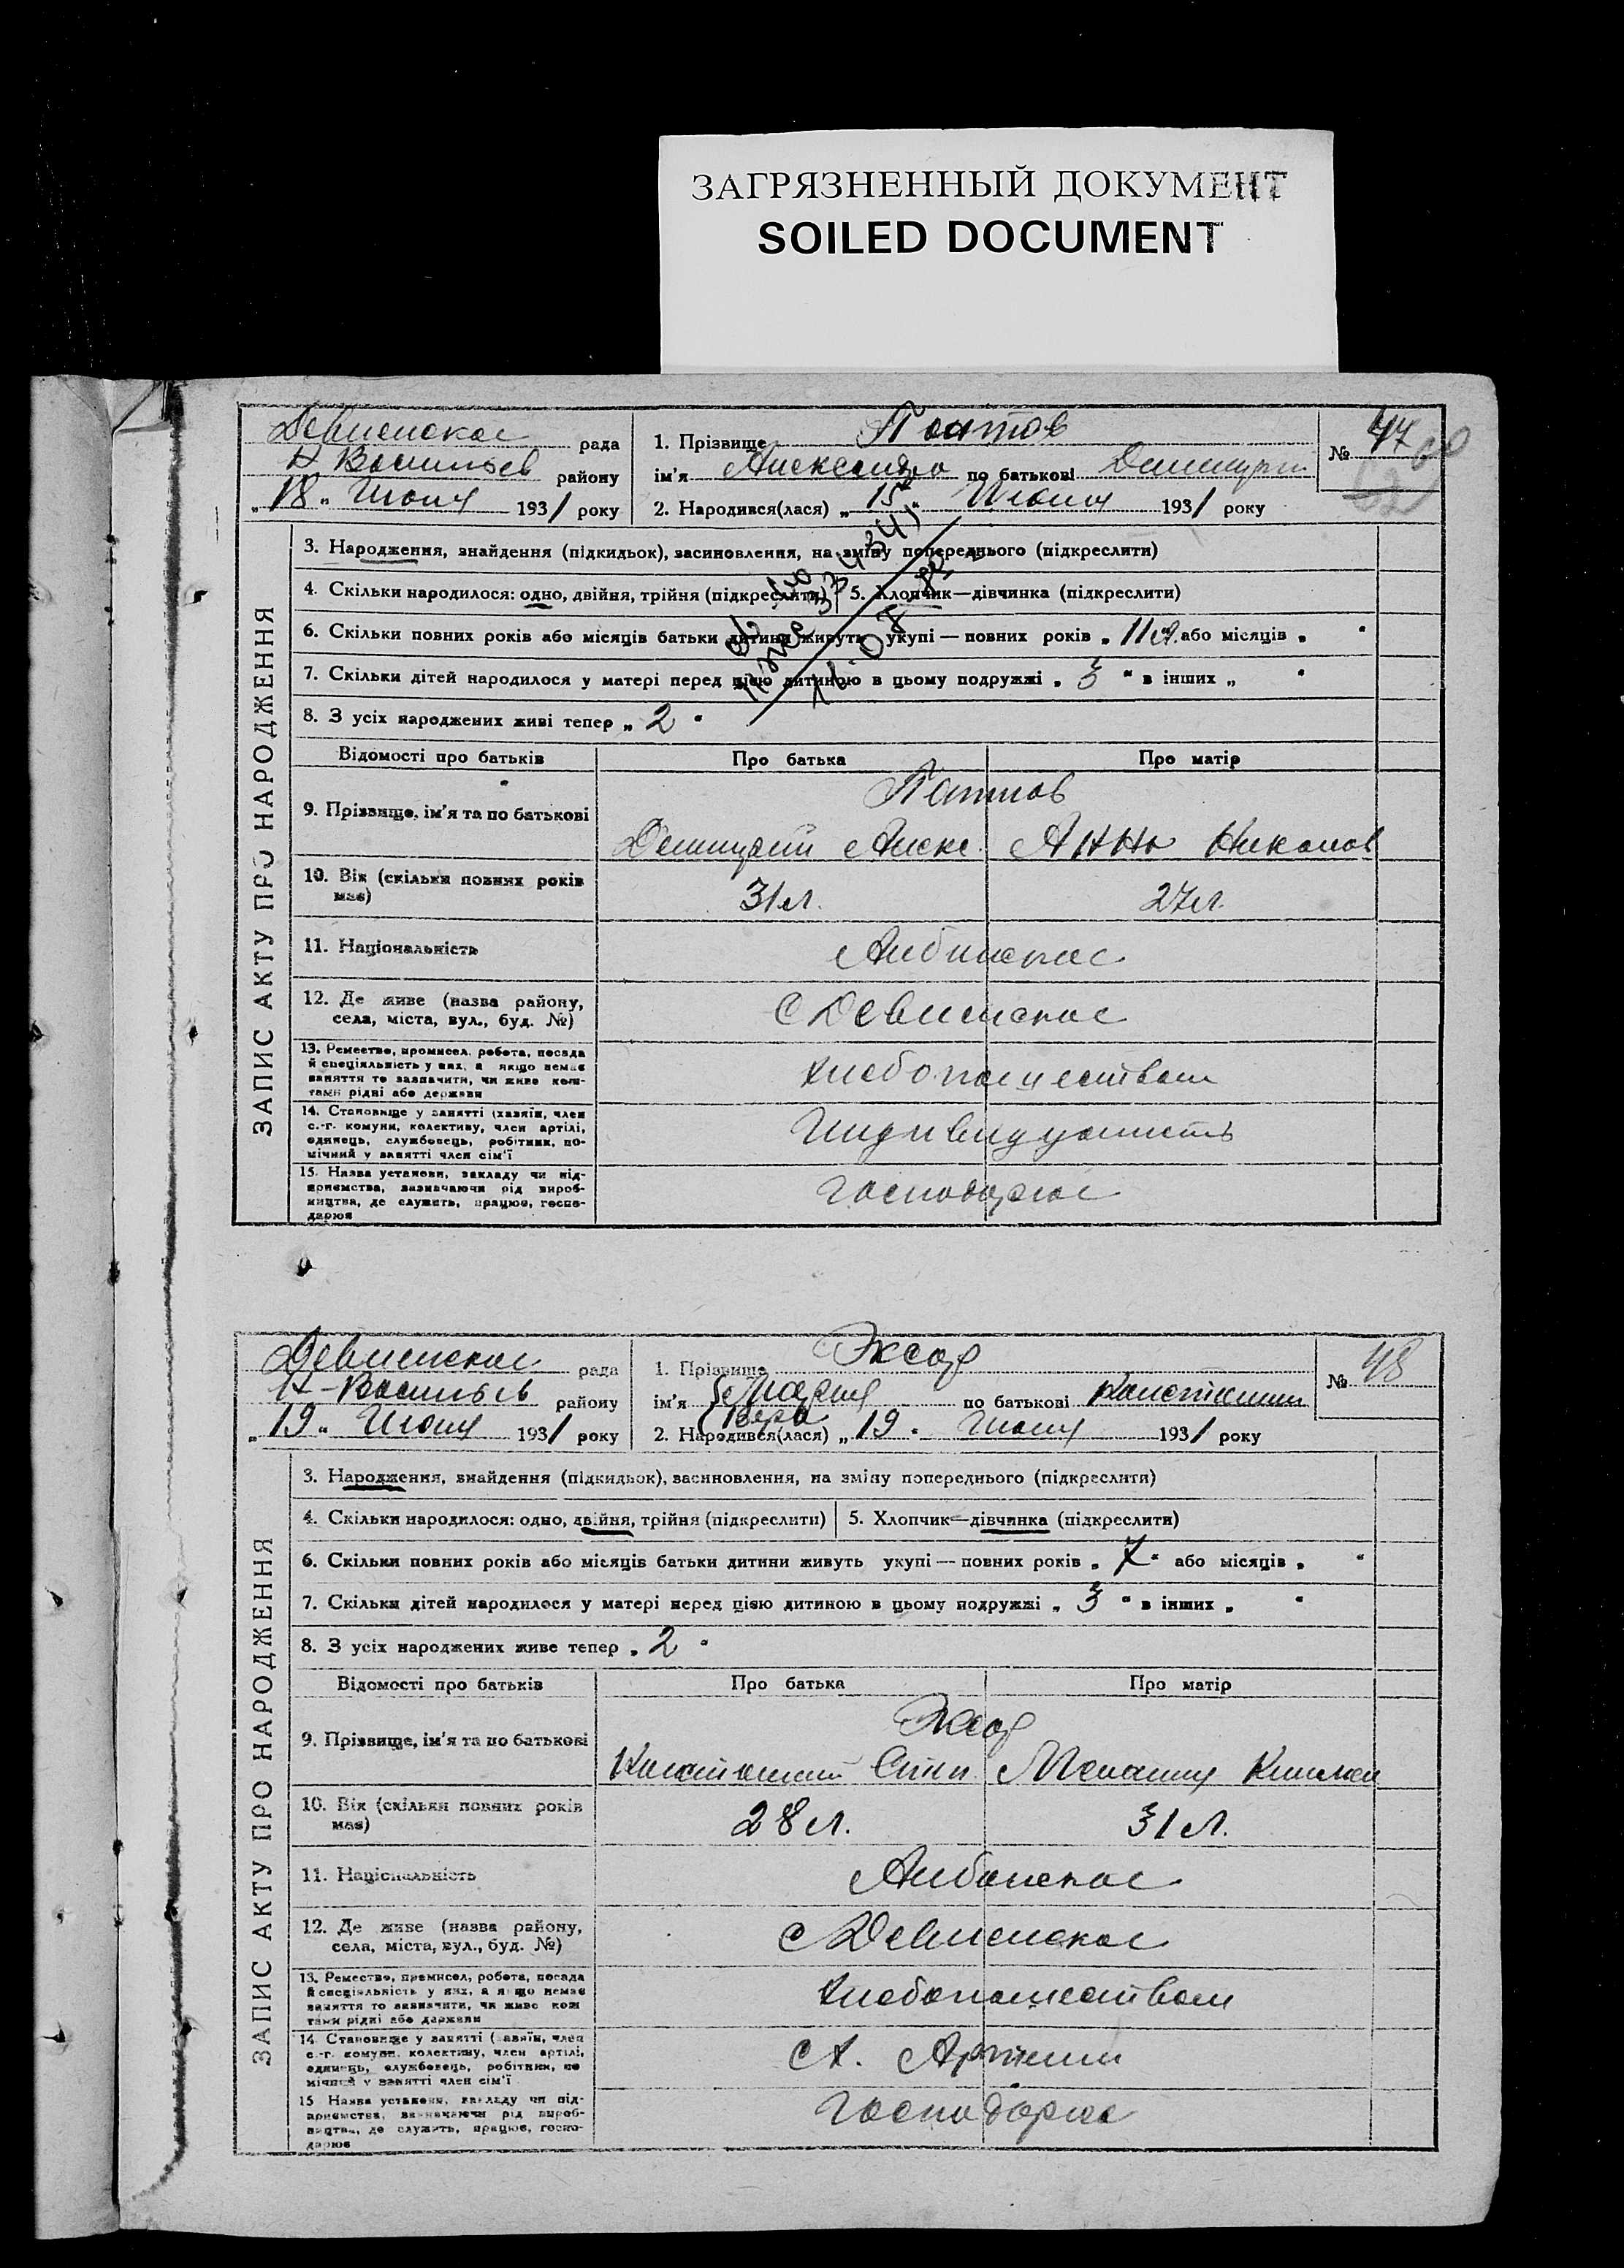 ЗАГРЯЗНЕННЫЙ ДОКУМЕНТ
SOILED DOCUMENT
Девненское рада
Н. Васильев району
„18„ Июня 1931 року
1. Прізвище
ім'я Александр по батькові
2. Народився(лася) „15„ Июня 1931 року
№ 47
ЗАПИС АКТУ ПРО НАРОДЖЕННЯ
3. Народження, знайдення (підкидьок), засиновлення, на зміну попереднього (підкреслити)
4. Скільки народилося: одно, двійня, трійня (підкреслити)
5. Хлопчик—дівчинка (підкреслити)
6. Скільки повних років або місяців батьки дитини живуть укупі — повних років „ 11 л. або місяців „ "
7. Скільки дітей народилося у матері перед цією дитиною в цьому подружжі „ 3 " в інших „ "
8. З усіх народжених живі тепер „ 2 "
Відомості про батьків Про батька Про матір
9. Прізвище, ім'я та по батькові
Алекс. Анна
10. Вік (скільки повних років має) 31 л. 27 л.
11. Національність Албанская
12. Де живе (назва району, села, міста, вул., буд. №) с Девненское
13. Ремество, промисел, робота, посада
й спеціяльність у них, а якщо немає
заняття то зазначити, чи живе кош-
тами рідні або держави
хлебопашеством
14. Становище у занятті (хазяїн, член
с.-г. комуни, колективу, член артілі,
одинець, службовець, робітник, по-
мічний у занятті член сім'ї
15. Назва установи, закладу чи під-
приємства, зазначаючи рід вироб-
ництва, де служить, працює, госпо-
дарює
Девненское рада
Н-Васильев району
„19„ Июня 1931 року
1. Прізвище Эксар
ім'я Мария
Вера
по батькові Константин
2. Народився(лася) „19. Июня 1931 року
№ 48
ЗАПИС АКТУ ПРО НАРОДЖЕННЯ
3. Народження, знайдення (підкидьок), засиновлення, на зміну попереднього (підкреслити)
4. Скільки народилося: одно, двійня, трійня (підкреслити)
5. Хлопчик—дівчинка (підкреслити)
6. Скільки повних років або місяців батьки дитини живуть укупі — повних років „ 7 " або місяців „ "
7. Скільки дітей народилося у матері перед цією дитиною в цьому подружжі „ 3 " в інших „ "
8. З усіх народжених живе тепер „ 2 "
Відомості про батьків Про батька Про матір
9. Прізвище, ім'я та по батькові Эксар
Константин Степ. Мелания
10. Вік (скільки повних років має) 28 л. 31 л.
11. Національність Албанская
12. Де живе (назва району, села, міста, вул., буд. №) с Девненское
13. Ремество, промисел, робота, посада
й спеціяльність у них, а якщо немає
заняття то зазначити, чи живе кош
тами рідні або держави
хлебопашеством
14. Становище у занятті (хазяїн, член
с.-г. комуни, колективу, член артілі,
одинець, службовець, робітник, по
мічний у занятті член сім'ї
15 Назва установи, закладу чи під-
приємства, зазначаючи рід вироб-
ництва, де служить, працює, госпо-
дарює